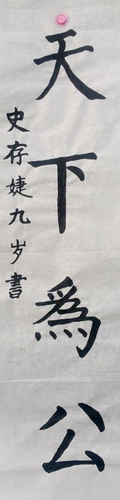 天下為公
史存婕九岁書